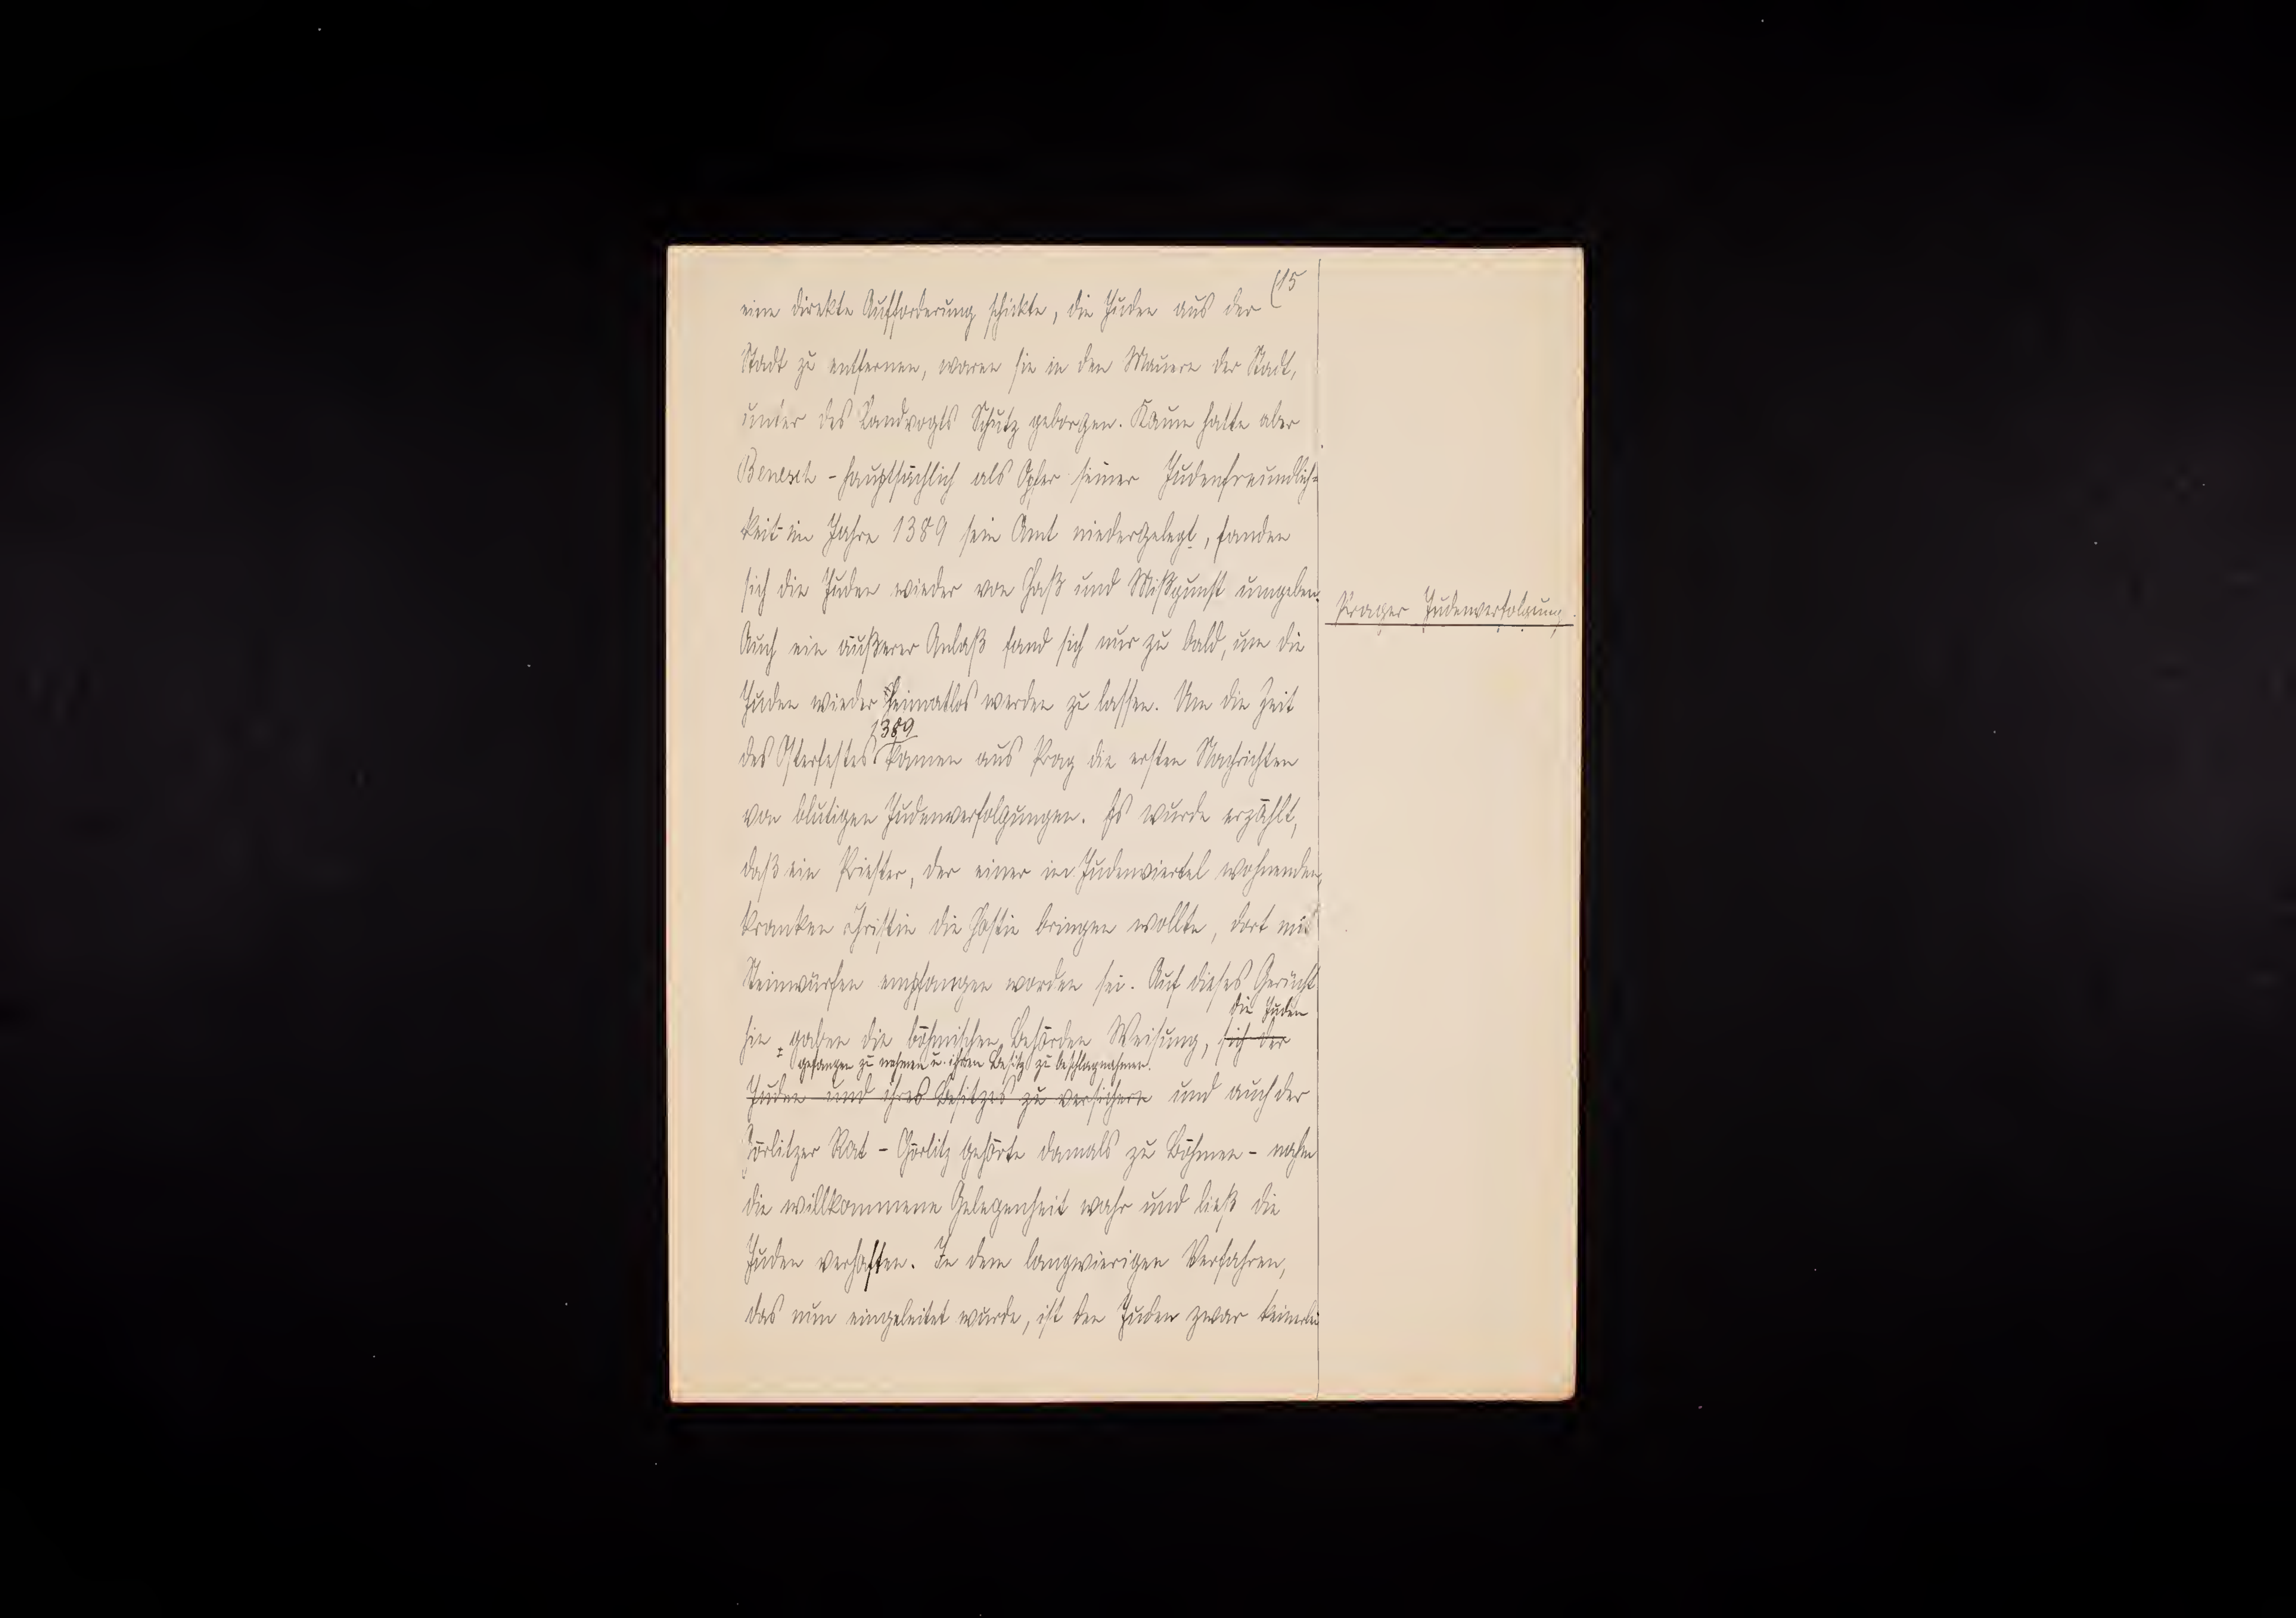 (15
eine direkte Aufforderung schickte, die Juden aus der
Stadt zu entfernen, waren sie in den Mauern der Stadt,
unter des Landvogts Schutz geborgen. Kaum hatte aber
Benesch - hauptsächlich als Opfer seiner Judenfreundlich-
keit - im Jahre 1389 sein Amt niedergelegt, fanden
sich die Juden wieder von Haß und Mißgunst umgeben.
Prager Judenverfolgung.
Auch ein äußerer Anlaß fand sich nur zu bald, um die
Juden wieder heimatlos werden zu lassen. Um die Zeit
1389
des Osterfestes kamen aus Prag die ersten Nachrichten
von blutigen Judenverfolgungen. Es wurde erzählt,
daß ein Priester, der einer im Judenviertel wohnenden,
kranken Christin die Hostie bringen wollte, dort mit
Steinwürfen empfangen worden sei. Auf dieses Gerücht
die Juden
hin gaben die böhmischen Behörden Weisung, sich der
gefangen zu nehmen u. ihren Besitz zu beschlagnahmen.
Juden und ihres Besitzes zu versichern und auch der
Görlitzer Rat - Görlitz gehörte damals zu Böhmen - nahm
die willkommene Gelegenheit wahr und ließ die
Juden verhaften. In dem langwierigen Verfahren,
das nun eingeleitet wurde, ist den Juden zwar keinerlei